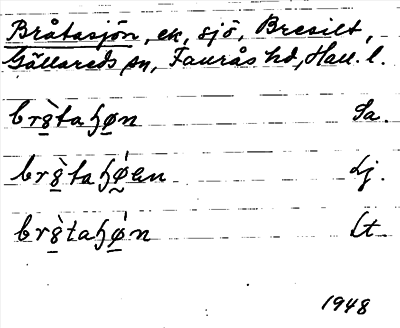 Bråtasjön, ek, sjö, Bresilt,
Gällareds sn, Faurås hd, Hall. l.
br8̠̀taꜧø̠n Sa.
br8̠̀taꜧǿ̰en Lj.
br8̠̀taꜧǿ̠n Lt
1948